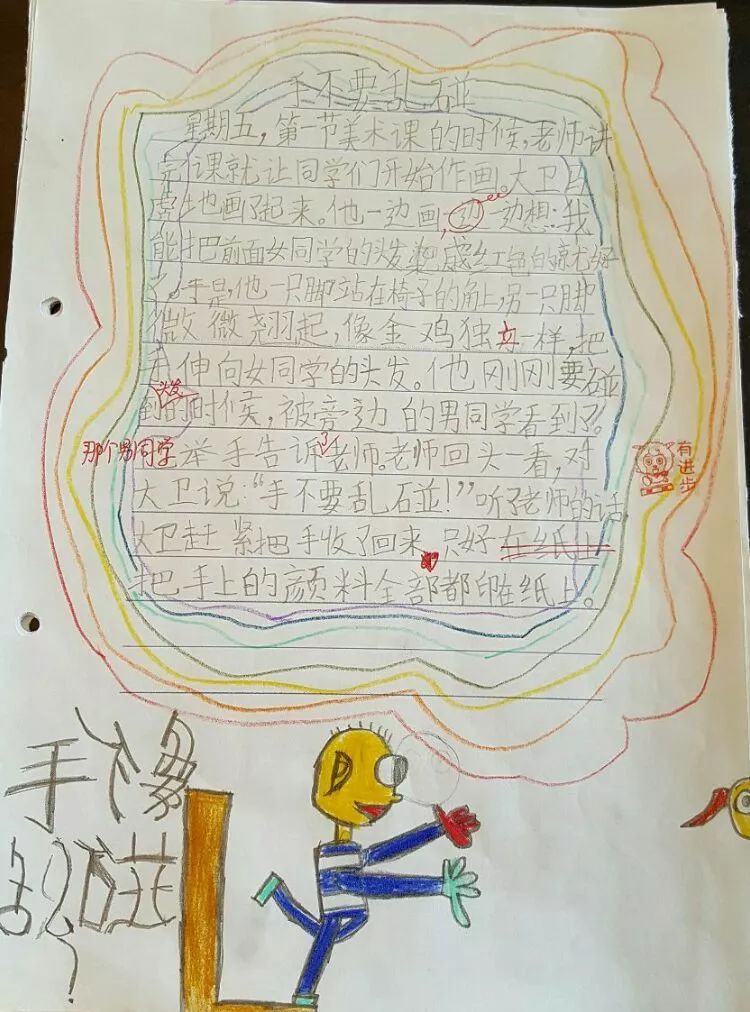 手不要乱碰
星期五,第一节美术课的时候,老师讲
完课就让同学们开始作画。大卫马
虎地画了起来。他一边画,一边想:我
能把前面女同学的头发 成红色的就好
了。于是,他一只脚站在椅子的角上,另一只脚
微微翘起,像金鸡独立一样,把
手伸向女同学的头发。他刚刚要碰
到头发的时候,被旁边的男同学看到了。
那个男同学举手告诉了老师。老师回头一看,对
大卫说:“手不要乱碰!”听了老师的话,
大卫赶紧把手收了回来,只好在纸上
把手上的颜料全部都印在纸上。
有进步
手不
乱碰